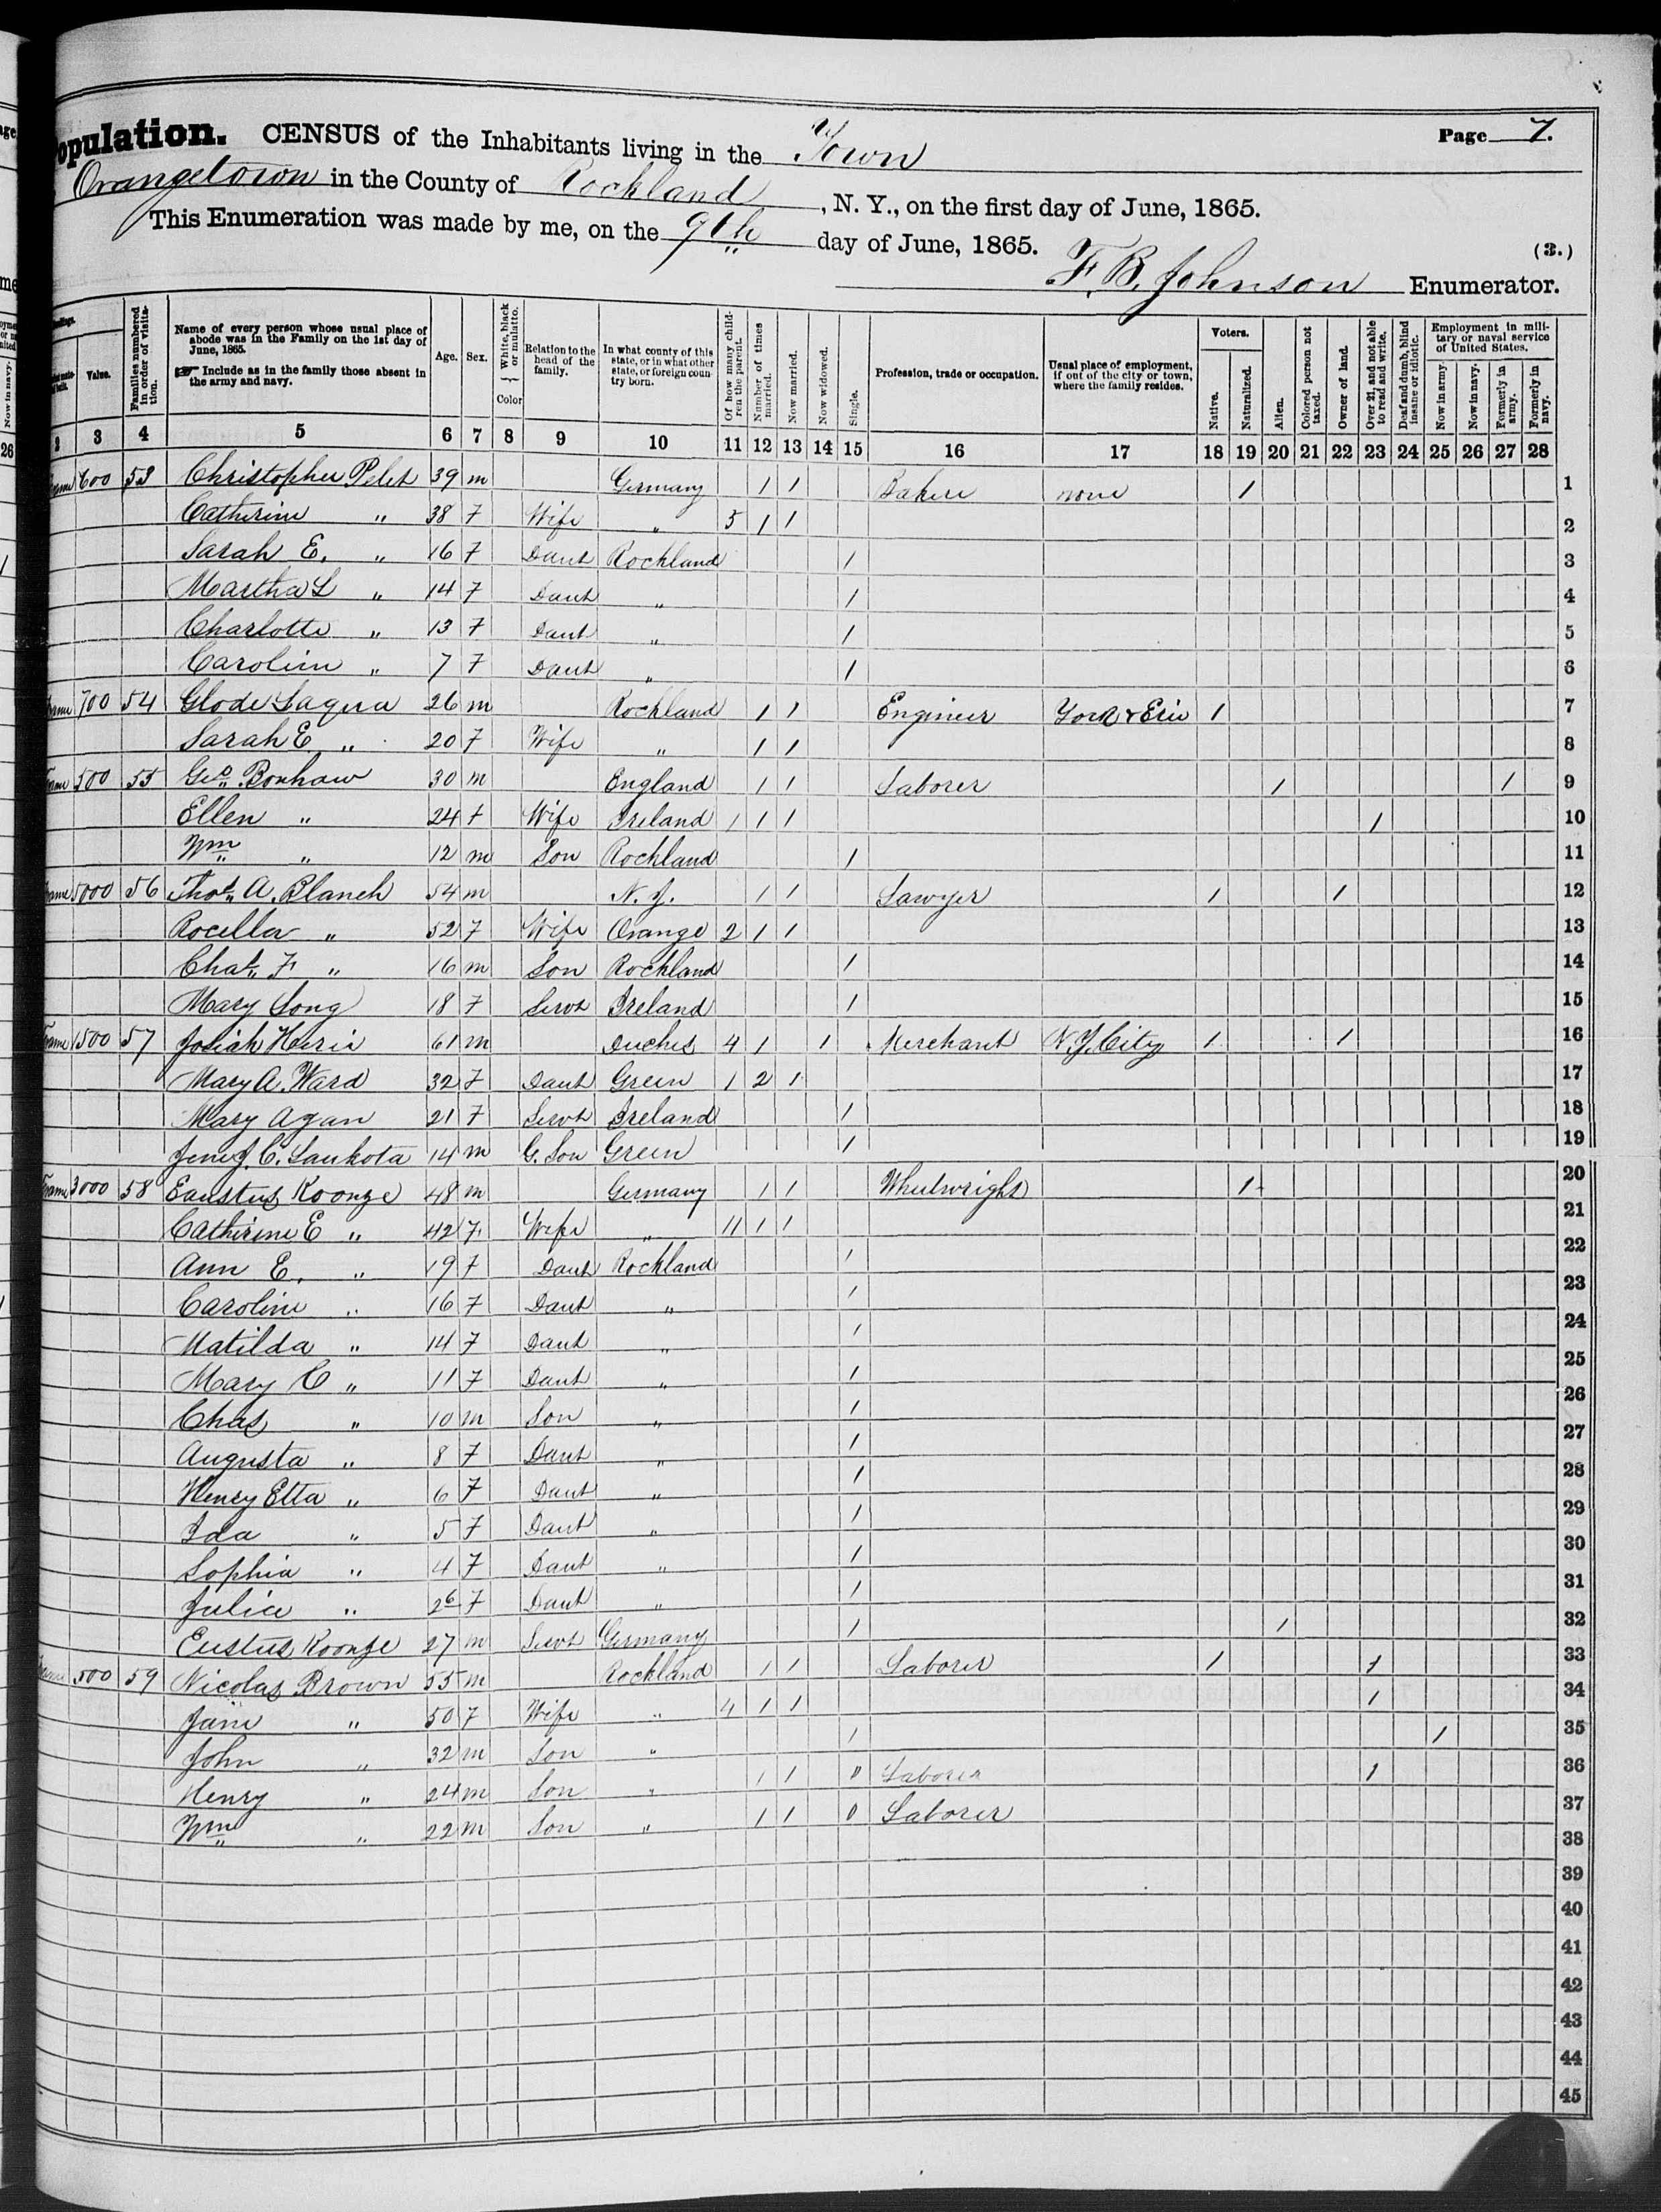 Population. CENSUS of the Inhabitants living in the Town Page 7.
Orangetown in the County of Rockland, N. Y., on the first day of June, 1865.
This Enumeration was made by me, on the 9th day of June, 1865. (3.)
F. B. Johnson Enumerator.
Value. Families numbered in order of visitation. Name of every person whose usual place of abode was in the Family on the 1st day of June, 1865. Include as in the family those absent in the army and navy. Age. Sex. White, black or mulatto. Color Relation to the head of the family. In what county of this state, or in what other state, or foreign country born. Of how many children the parent. Number of times married. Now married. Now widowed. Single. Profession, trade or occupation. Usual place of employment, if out of the city or town, where the family resides. Voters. Native. Naturalized. Alien. Colored person not taxed. Owner of land. Over 21, and not able to read and write. Deaf and dumb, blind insane or idiotic. Employment in military or naval service of United States. Now in army. Now in navy. Formerly in army. Formerly in navy.
2 3 4 5 6 7 8 9 10 11 12 13 14 15 16 17 18 19 20 21 22 23 24 25 26 27 28
Frame 600 53 Christopher Pelet 39 m Germany 1 1 Baker none 1 1
Catherine " 38 F Wife " 5 1 1 2
Sarah E. " 16 F Daut Rockland 1 3
Martha L " 14 F Daut " 1 4
Charlotte " 13 F Daut " 1 5
Carolin " 7 F Daut " 1 6
Frame 700 54 Glode 26 m Rockland 1 1 Engineer York & Erie 1 7
Sarah E " 20 F Wife " 1 1 8
Frame 500 55 Geo. Bonhaw 30 m England 1 1 Laborer 1 1 9
Ellen " 24 F Wife Ireland 1 1 1 1 10
Wm " 12 m Son Rockland 1 11
Frame 5000 56 Thos. A. Blanch 54 m N. J. 1 1 Lawyer 1 1 12
Rocella " 52 F Wife Orange 2 1 1 13
Chas. F. " 16 m Son Rockland 1 14
Mary Long 18 F Servt Ireland 1 15
Frame 1500 57 Josiah 61 m Duches 4 1 1 Merchant N.Y. City 1 1 16
Mary A. Ward 32 F Daut Green 1 2 1 17
Mary Agan 21 F Servt Ireland 1 18
C. 14 m G. Son Green 1 19
Frame 3000 58 Eaustus Koonze 48 m Germany 1 1 Wheelwright 1 20
Catherine E " 42 F Wife " 11 1 1 21
Ann E. " 19 F Daut Rockland 1 22
Caroline " 16 F Daut " 1 23
Matilda " 14 F Daut " 1 24
Mary C " 11 F Daut " 1 25
Chas " 10 m Son " 1 26
Augusta " 8 F Daut " 1 27
Henry Etta " 6 F Daut " 1 28
Ida " 5 F Daut " 1 29
Sophia " 4 F Daut " 1 30
Julia " 2 6 F Daut " 1 31
Eustus Koonze 27 m Servt Germany 1 1 32
Frame 500 59 Nicolas Brown 55 m Rockland 1 1 Laborer 1 1 33
Jane " 50 F Wife " 4 1 1 1 34
John " 32 m Son " 1 1 35
Henry " 24 m Son " 1 1 0 Laborer 1 36
Wm " 22 m Son " 1 1 0 Laborer 37
38
39
40
41
42
43
44
45